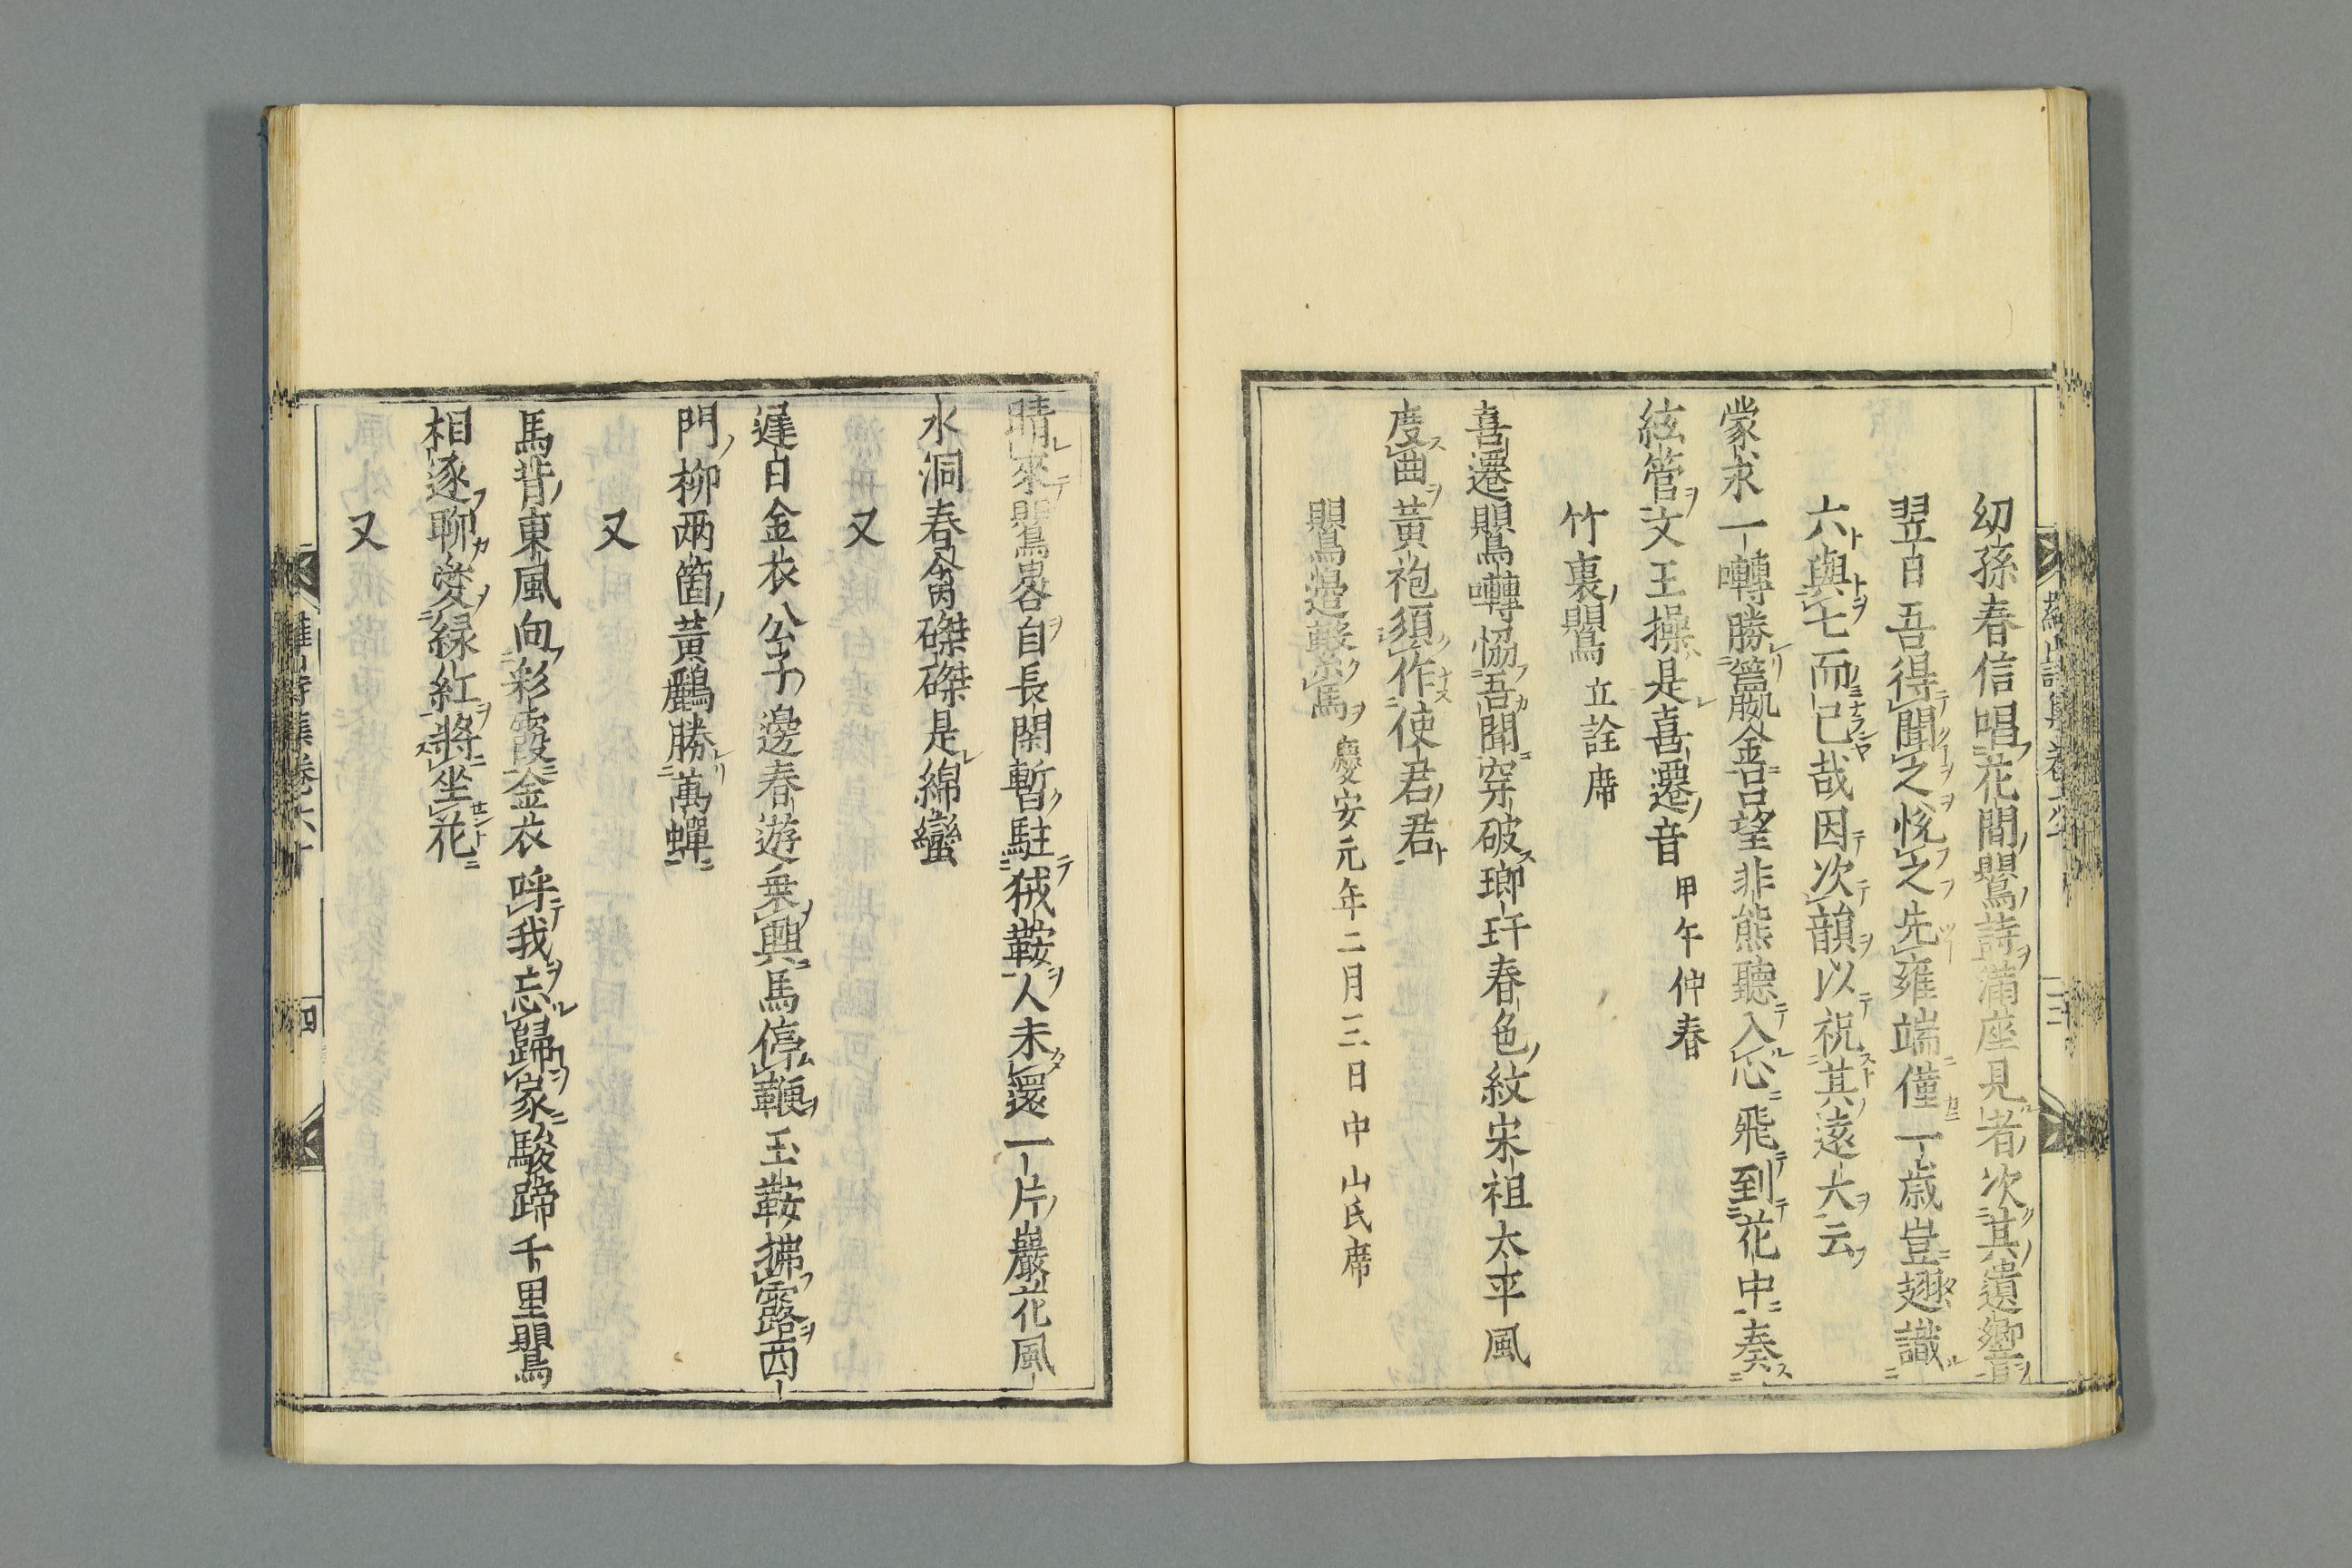 幼孫春信唱花間鸎詩滿座見者次其遺響
翌日吾得聞之悦之先雍端僅一歳豈翅識
六與七而已哉因次韻以祝其遠大云
蒙求一囀勝籯金呂望非熊聽入心飛到花中奏
絃管文王操是喜遷音 甲午仲春
竹裏鸎 立詮席
喜遷鸎囀恊吾聞穿破瑯玕春色紋宋祖太平風
度曲黃袍須作使君君
鸎邊繋馬 慶安元年二月三日中山氏席
晴來鸎谷自長閑暫駐猿鞍人未還一片巖花風
水洞春禽磔磔是綿蠻
又
遲日金衣公子邊春遊乗興馬停鞭玉鞍拂露西
門柳兩箇黃鸝勝萬蟬
又
馬背東風向彩霞金衣呼我忘歸家駿蹄千里鸎
相逐聊愛緑紅將坐花
又